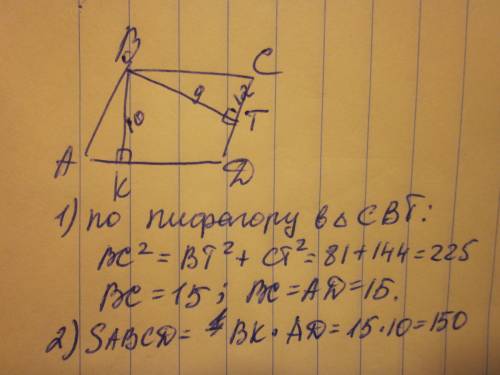 B
C
9
12
10
T
A
K
D
1) по пифагору в △ CBT:
BC² = BT² + CT² = 81 + 144 = 225
BC = 15; BC = AD = 15.
2) SABCD = BK · AD = 15 · 10 = 150